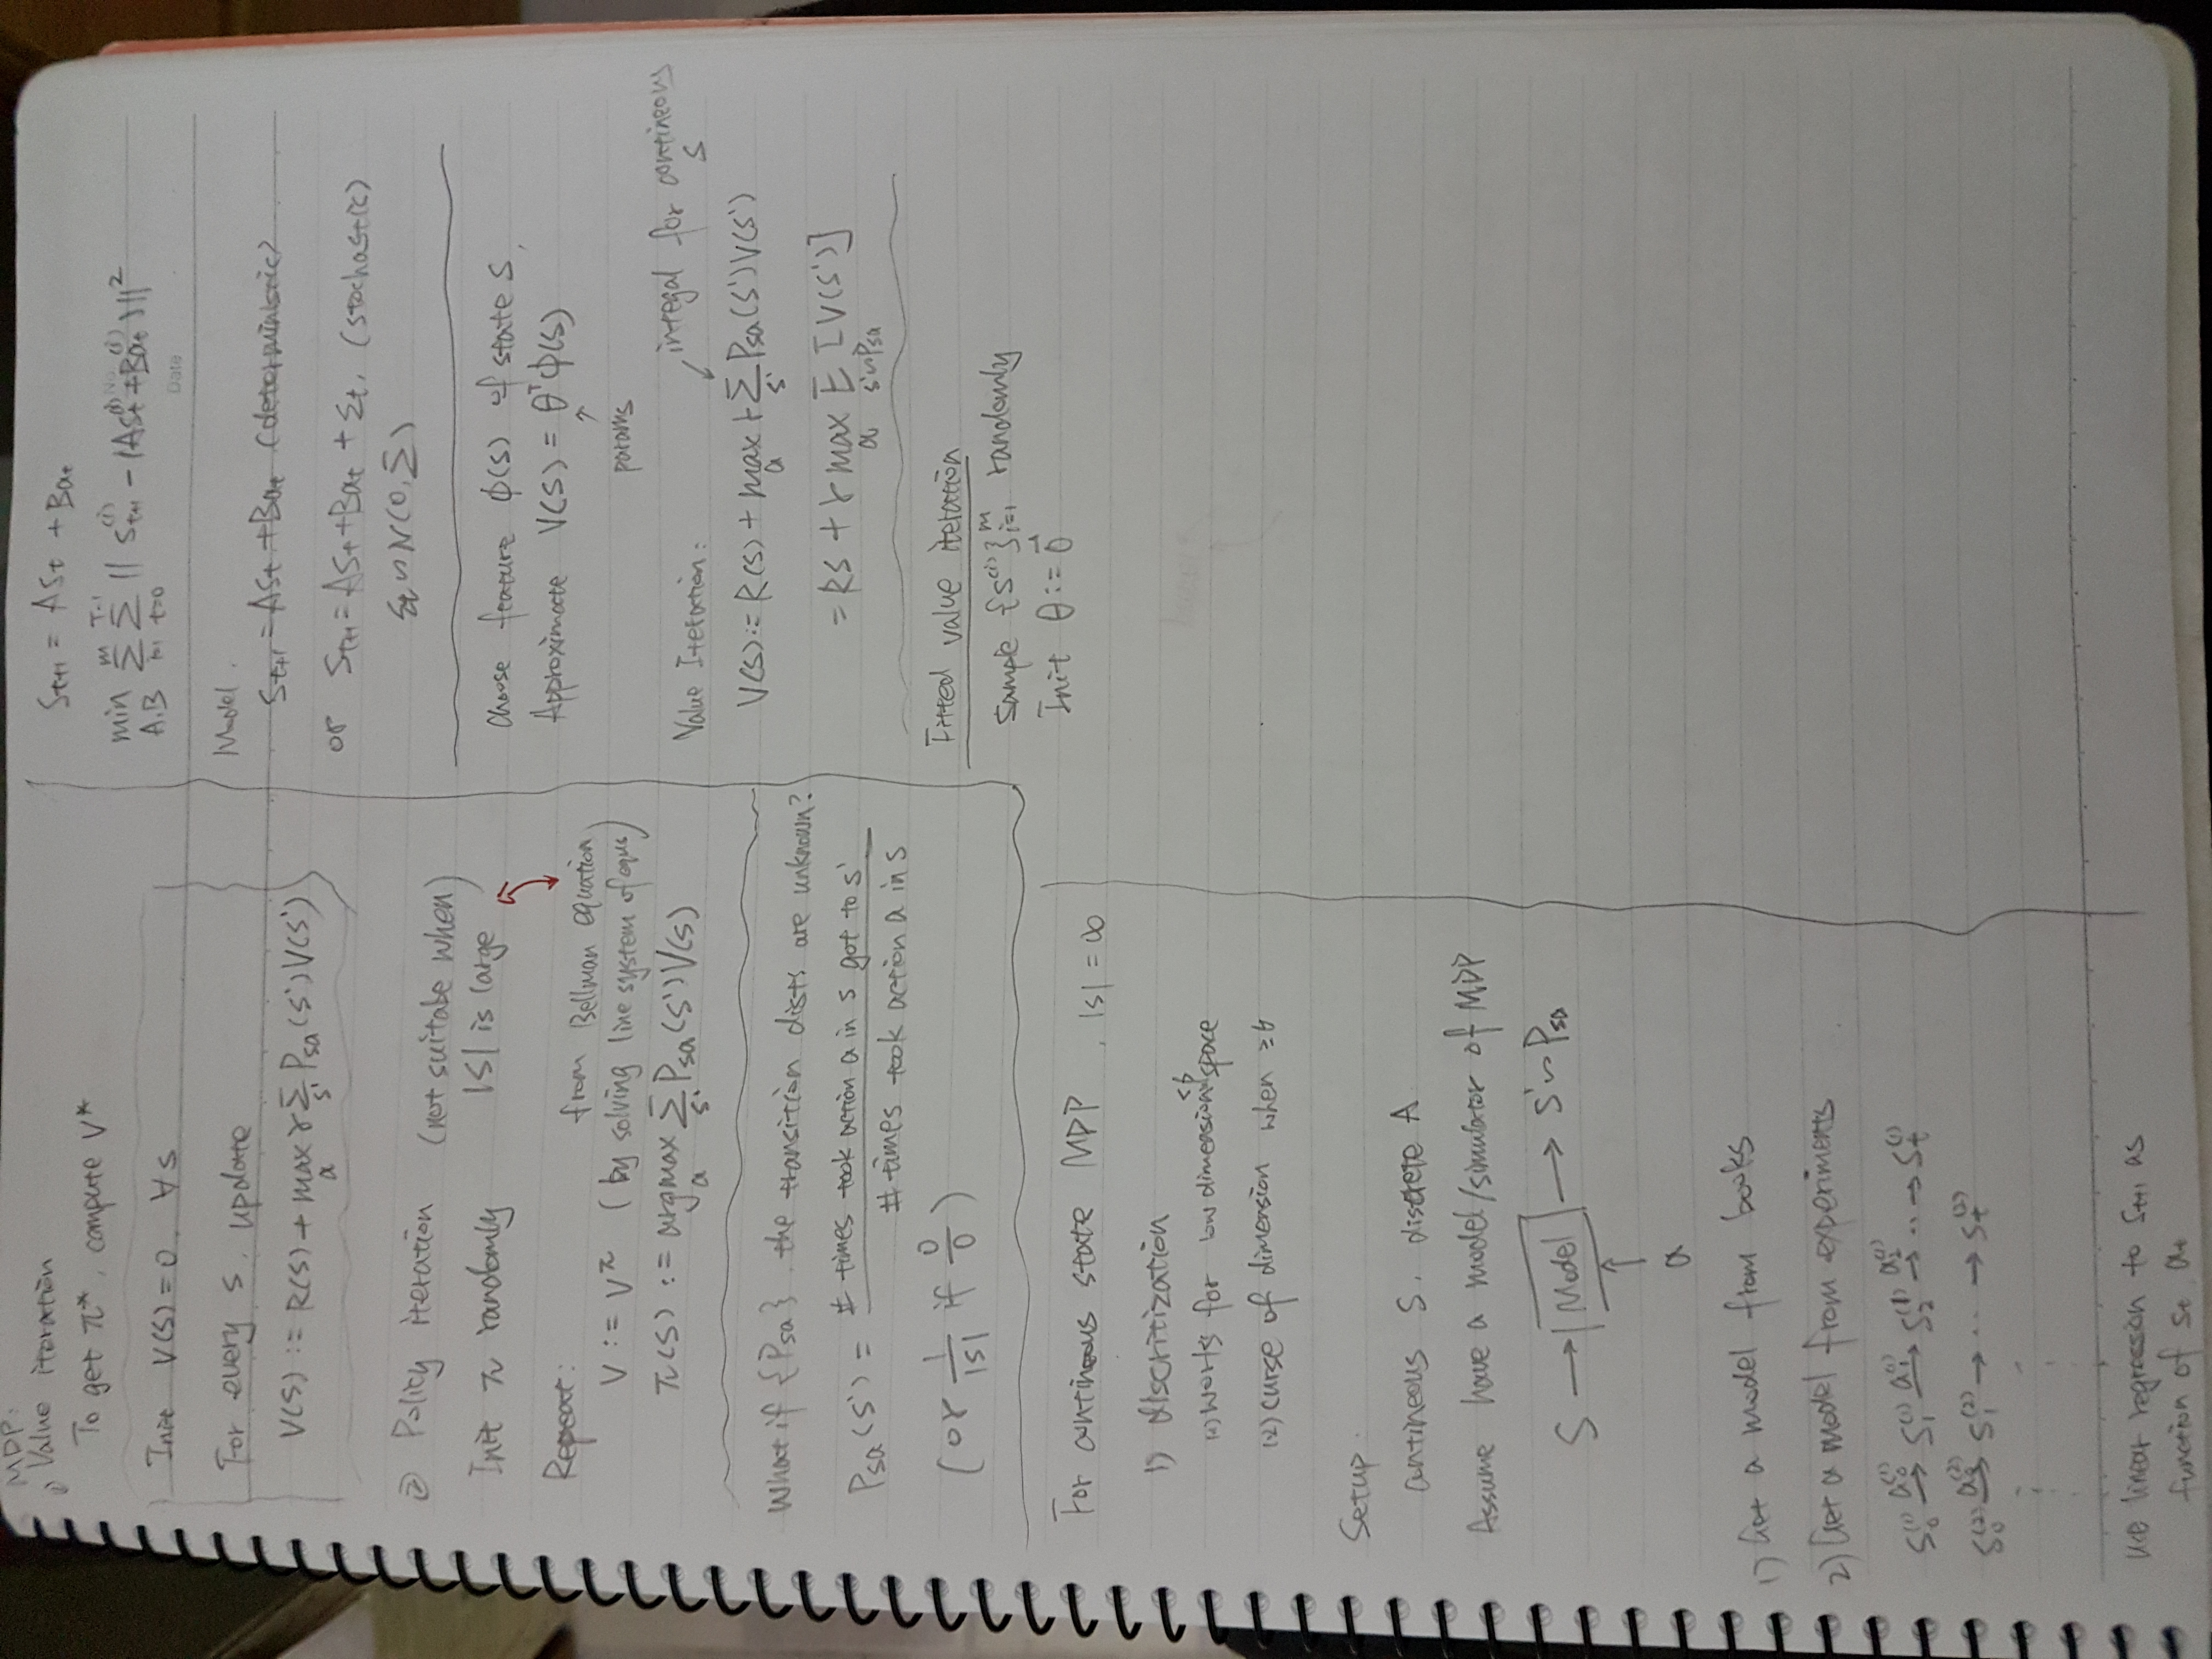 MDP:
① Value iteration
To get π*, compute V*
Init V(s) = 0. ∀s
For every s, update
V(s) := R(s) + max_a γ Σ_s' P_sa(s')V(s')
② Policy iteration (not suitabe when)
Init π randomly |S| is large
Repeat:
from Bellman equation
V := V^π (by solving line system of equs)
π(s) := argmax_a Σ_s' P_sa(s')V(s)
What if {P_sa}, the transition dists are unknown?
P_sa(s') = # times took action a in s got to s'
# times took action a in s
(or 1/|S| if 0/0)
For contineous state MDP, |S| = ∞
1) discritization
(1) works for low dimension space <6
(2) curse of dimension when ≥6
Setup:
contineous S, discrete A
Assume have a model/simulator of MDP
S → Model → s' ~ P_sa
↑
a
1) Get a model from books
2) Get a model from experiments
S_0^(1) →a_0^(1) S_1^(1) →a_1^(1) S_2^(1) →a_2^(1) ... → S_t^(1)
S_0^(2) →a_0^(2) S_1^(2) → ... → S_t^(2)
use linear regression to S_t+1 as
function of S_t a_t
S_t+1 = AS_t + Ba_t
No.
min_A,B Σ_i=1^m Σ_t=0^T-1 || S_t+1^(i) - (AS_t^(i) + Ba_t^(i)) ||^2
Date
Model.
S_t+1 = AS_t + Ba_t (deterministic)
or S_t+1 = AS_t + Ba_t + ε_t, (stochastic)
ε_t ~ N(0, Σ)
Choose feature φ(s) of state S,
Approximate V(s) = θ^T φ(s)
↑
params
integal for contineous
S
Value Iteration:
V(s) := R(s) + max_a γ Σ_s' P_sa(s')V(s')
= Rs + γ max_a E_s'~P_sa [V(s')]
Fitted value iteration
Sample {S^(i)}_i=1^m randomly
Init θ := 0⃗